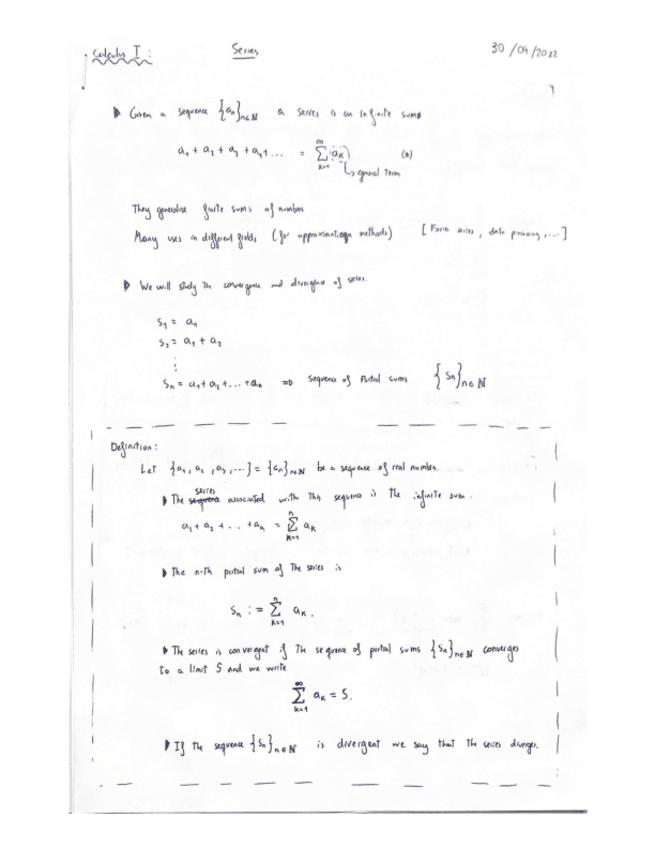 Calculus I :
Series
30/09/2022
1
▶ Given a sequence {aₙ}ₙ∈ℕ a series is an infinite sum
a₁ + a₂ + a₃ + a₄ + ... = ∑_{k=1}^{∞} (aₖ) (*)
↳ general term
They generalise finite sums of numbers
Many uses in different fields (for approximation methods) [ series, data processing, ... ]
▶ We will study the convergence and divergence of series.
S₁ = a₁
S₂ = a₁ + a₂
⋮
Sₙ = a₁ + a₂ + ... + aₙ ⇒ sequence of Partial sums {Sₙ}ₙ∈ℕ
Definition :
Let {a₁, a₂, a₃, ...} = {aₙ}ₙ∈ℕ be a sequence of real number.
▶ The series associated with this sequence is the infinite sum.
a₁ + a₂ + ... + aₙ = ∑_{k=1}^{n} aₖ
▶ The n-th partial sum of the series is
Sₙ := ∑_{k=1}^{n} aₖ.
▶ The series is convergent if the sequence of partial sums {Sₙ}ₙ∈ℕ converges
to a limit S and we write
∑_{k=1}^{∞} aₖ = S.
▶ If the sequence {Sₙ}ₙ∈ℕ is divergent we say that the series diverges.